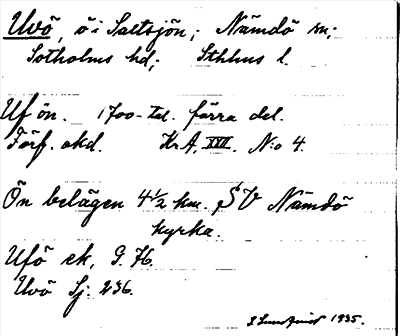 Uvö, ö i Saltsjön; Nämdö sn;
Sotholms hd; Sthlms l.
Uf ön. 1700-tal. förra del.
Förf. okd. Kr.A. XVII. N:o 4.
Ön belägen 4 1/2 km. SV Nämdö
kyrka.
Ufö ek. G. 76.
Uvö Sj. 236.
Lundqvist 1935.